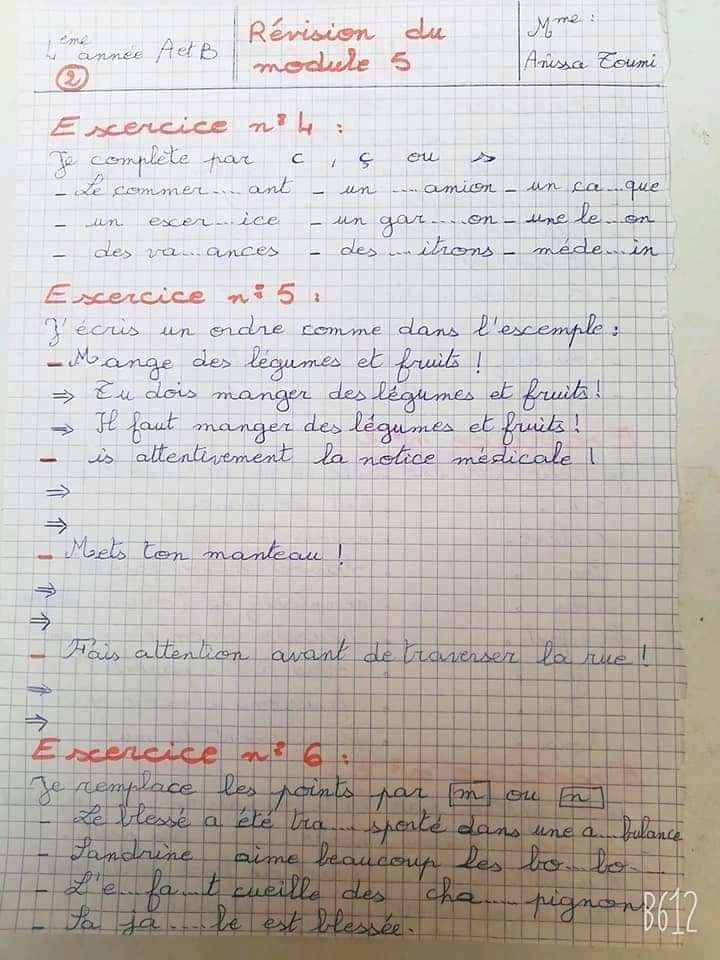 4 ème année A et B
2
Révision du module 5
Mme :
Anissa Toumi
Exercice n° 4 :
Je complète par c , ç ou s
- Le commer....ant - un ....amion - un ca...que
- un exer...ice - un gar....on - une le...on
- des va...ances - des ...itrons - méde...in
Exercice n° 5 :
J'écris un ordre comme dans l'escemple :
- Mange des légumes et fruits !
⇒ Tu dois manger des légumes et fruits !
⇒ Il faut manger des légumes et fruits !
- is attentivement la notice médicale !
⇒
⇒
- Mets ton manteau !
⇒
⇒
- Fais attention avant de traverser la rue !
⇒
⇒
Exercice n° 6 :
Je remplace les points par [m] ou [n]
- Le blessé a été tra....sporté dans une a...bulance
- Sandrine aime beaucoup les bo...bo...
- L'e...fa...t cueille des cha....pignons
- Sa ja....be est blessée.
B612